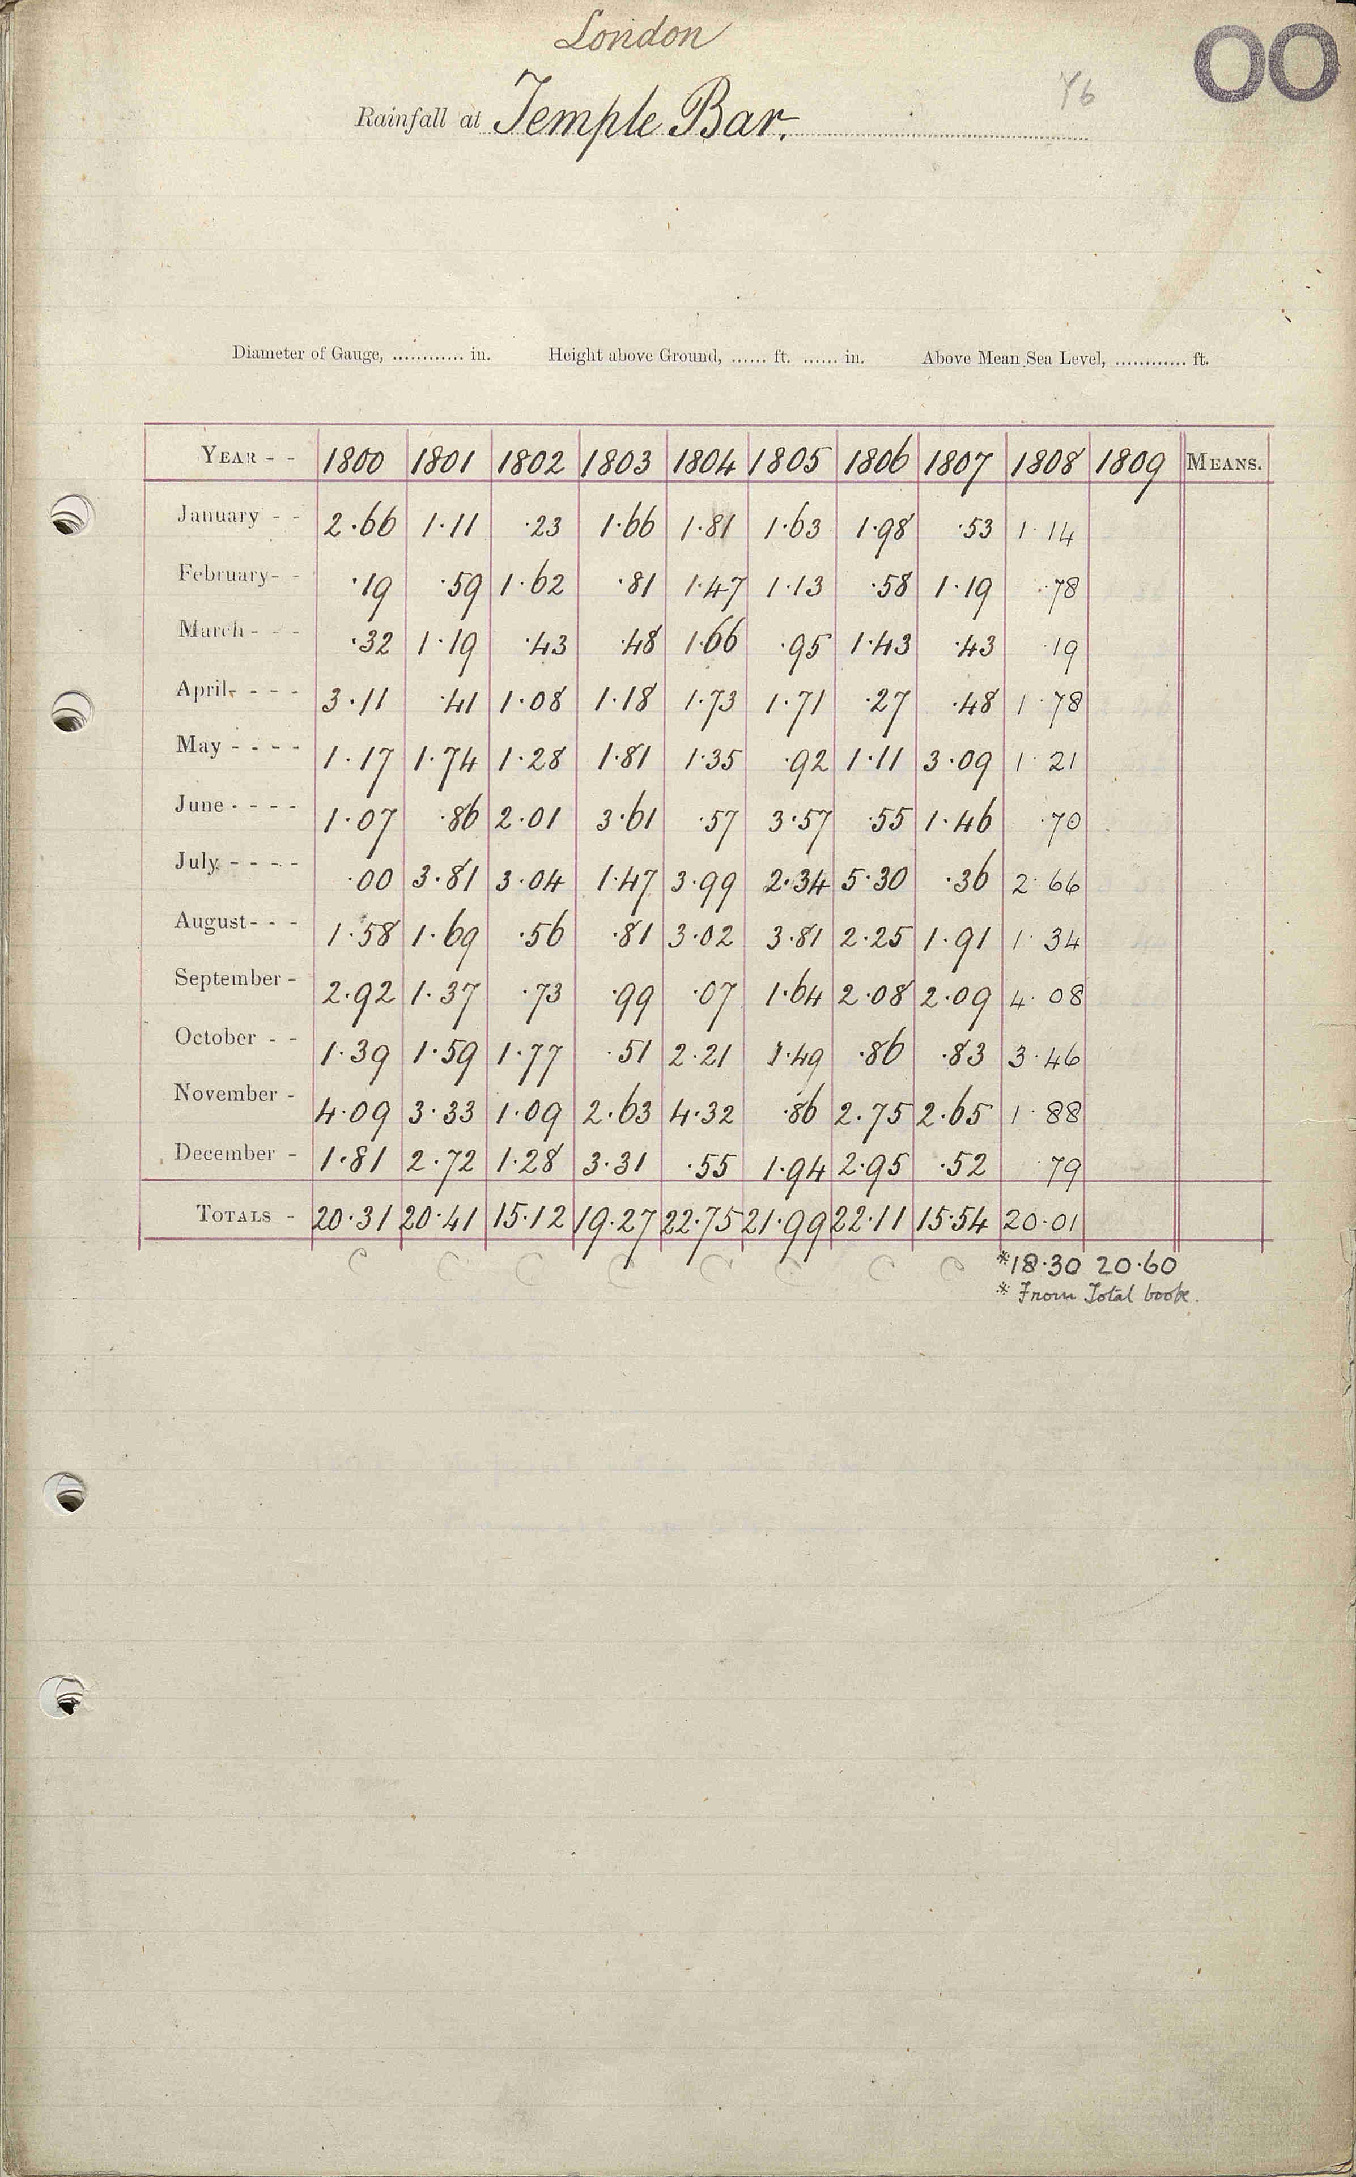 London
OO
Rainfall at Temple Bar.
Diameter of Gauge, ............ in. Height above Ground, ...... ft. ...... in. Above Mean Sea Level, ............ ft.
YEAR - - 1800 1801 1802 1803 1804 1805 1806 1807 1808 1809 MEANS.
January - - 2.66 1.11 .23 1.66 1.81 1.63 1.98 .53 1.14
February - - .19 .59 1.62 .81 1.47 1.13 .58 1.19 .78
March - - - .32 1.19 .43 .48 1.66 .95 1.43 .43 .19
April - - - 3.11 .41 1.08 1.18 1.73 1.71 .27 .48 1.78
May - - - - 1.17 1.74 1.28 1.81 1.35 .92 1.11 3.09 1.21
June - - - - 1.07 .86 2.01 3.61 .57 3.57 .55 1.46 .70
July - - - - .00 3.81 3.04 1.47 3.99 2.34 5.30 .36 2.66
August - - - 1.58 1.69 .56 .81 3.02 3.81 2.25 1.91 1.34
September - 2.92 1.37 .73 .99 .07 1.64 2.08 2.09 4.08
October - - 1.39 1.59 1.77 .51 2.21 1.49 .86 .83 3.46
November - 4.09 3.33 1.09 2.63 4.32 .86 2.75 2.65 1.88
December - 1.81 2.72 1.28 3.31 .55 1.94 2.95 .52 .79
TOTALS - 20.31 20.41 15.12 19.27 22.75 21.99 22.11 15.54 20.01
C C C C C C C C *18.30 20.60
* From Total book.